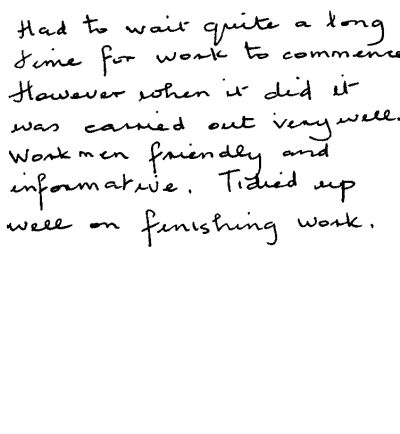 Had to wait quite a long
time for work to commence
However when it did it
was carried out very well.
Workmen friendly and
informative. Tidied up
well on finishing work.